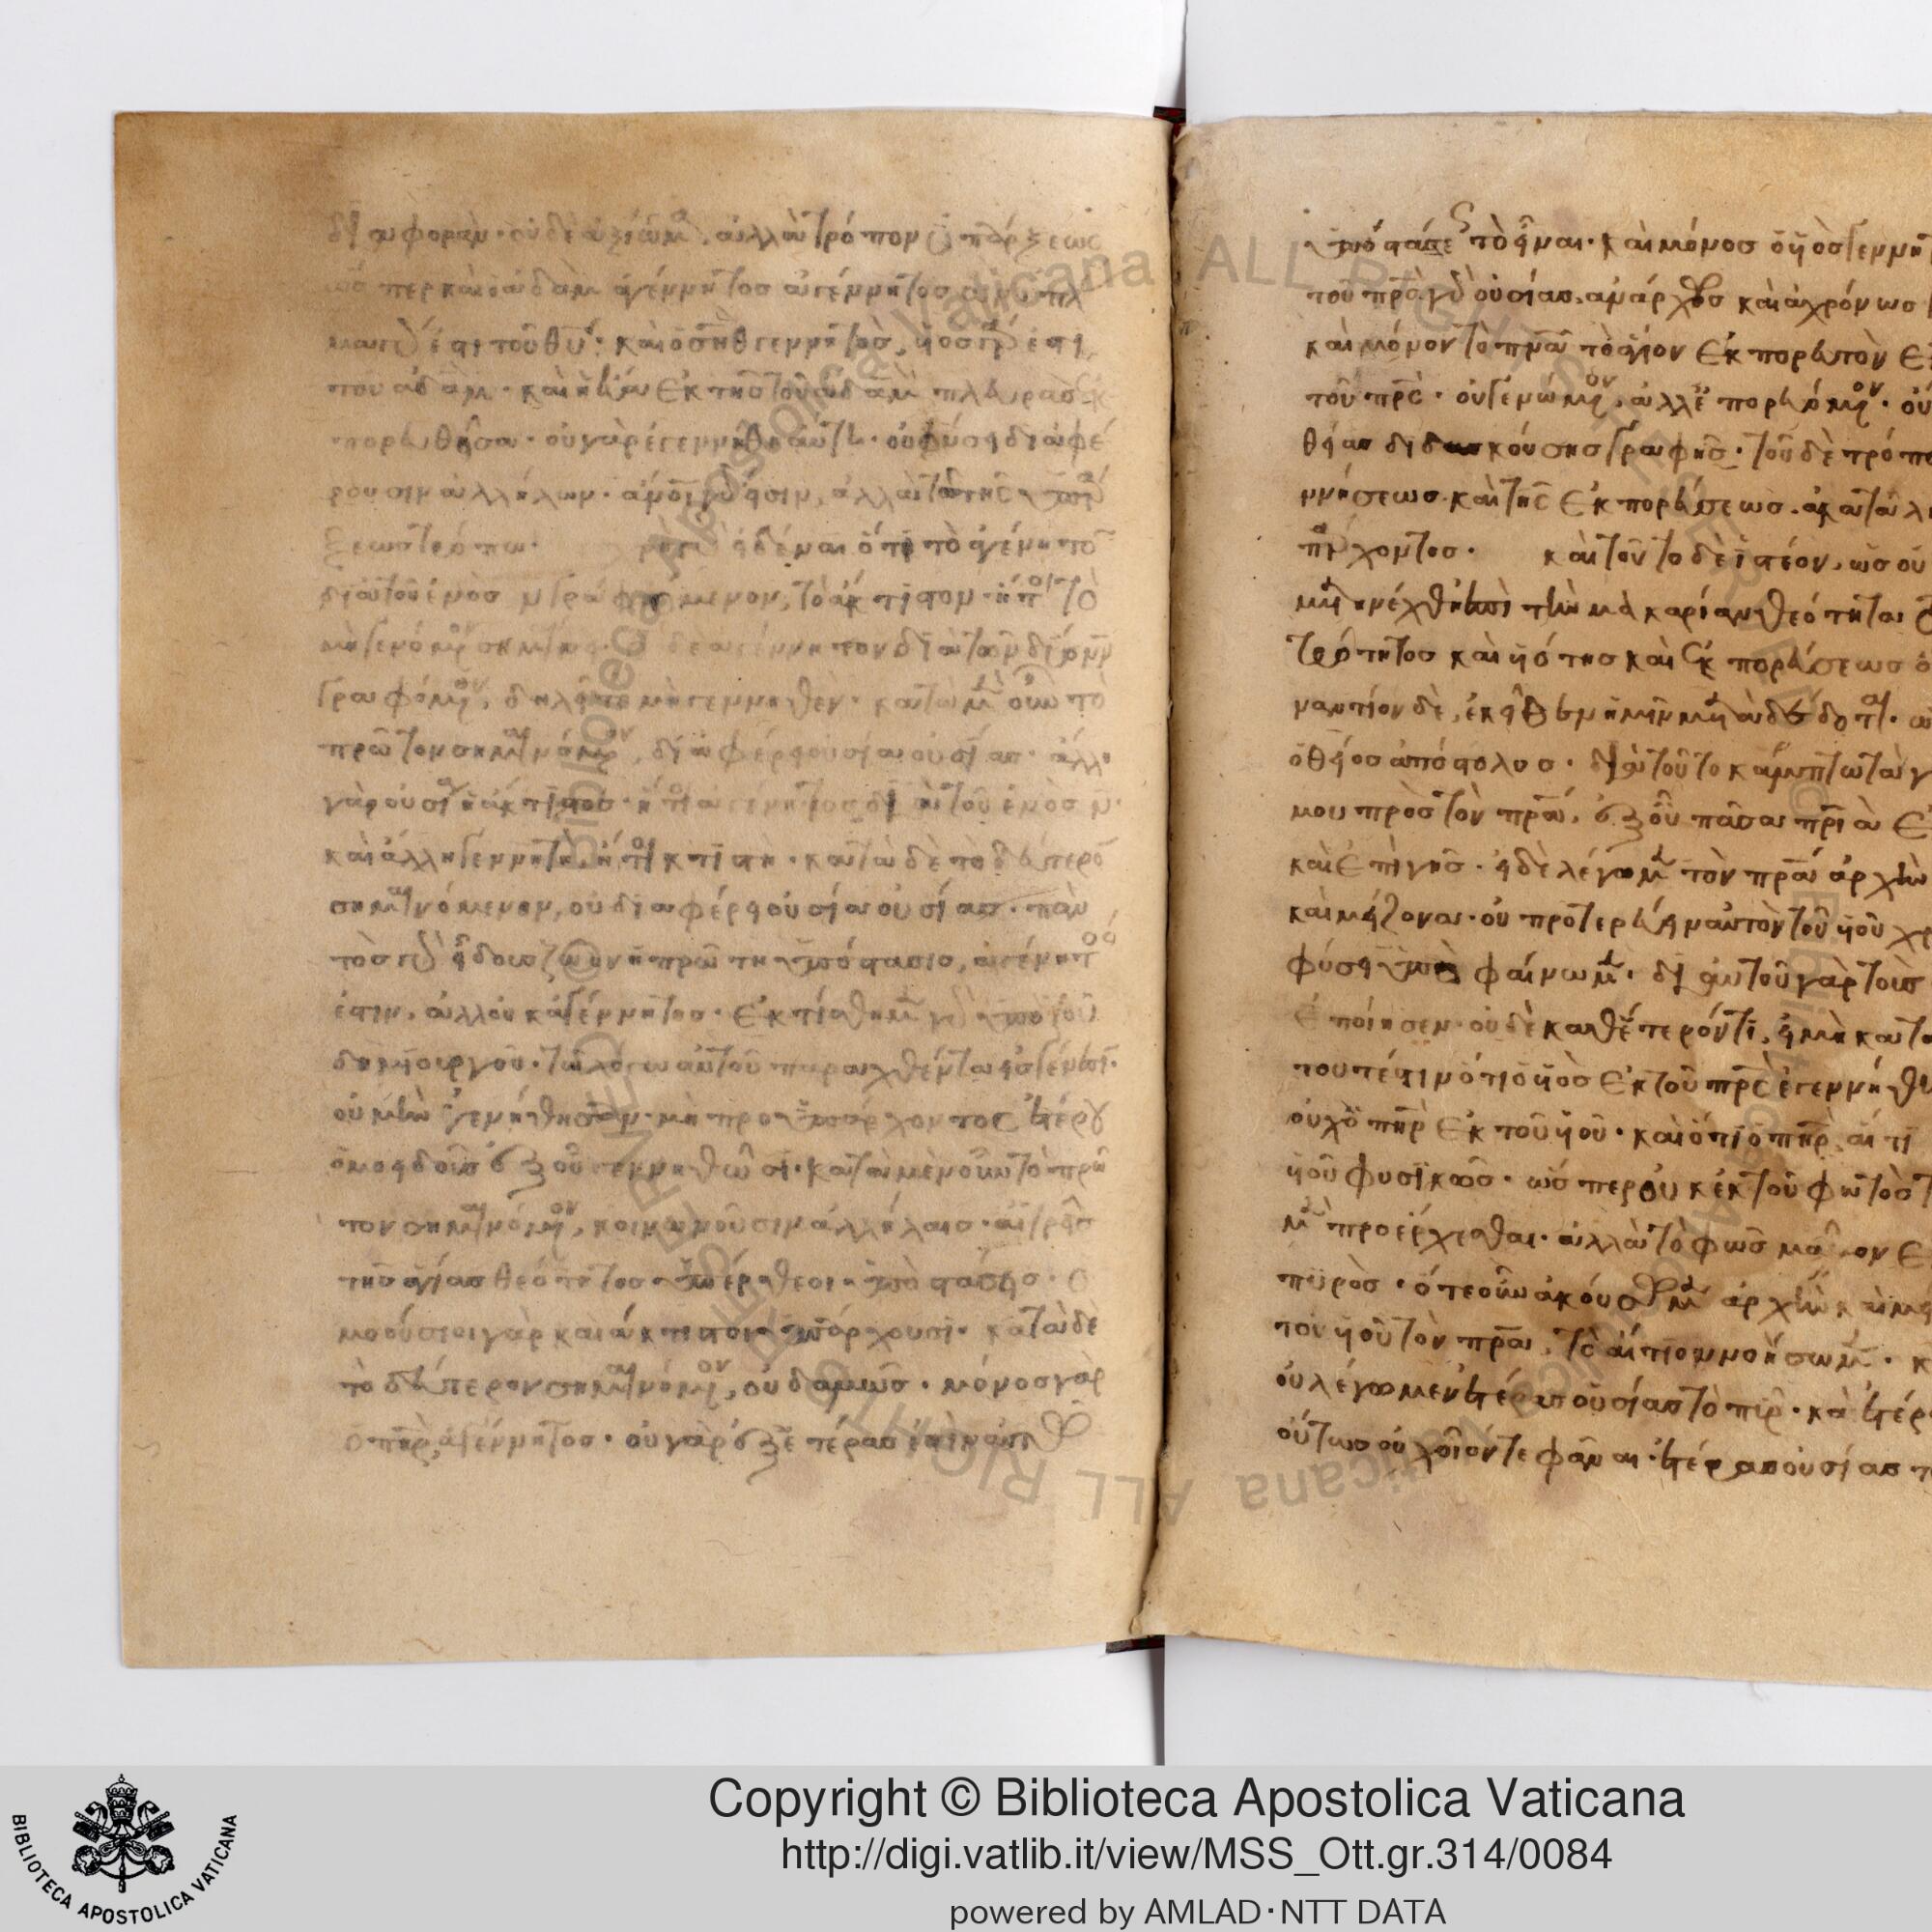 διαφορὰν· οὐδὲ ἀξίωμα, ἀλλὰ τρόπον ὑπάρξεως
ὥσπερ καὶ ὁ ἀδὰμ ἀγέννητος
τοῦ θυ· καὶ ὁ σὴθ γεννητὸς, υἱὸς
του αδὰμ· καὶ ἡ εὕα ἐκ τῆς τοῦ αδὰμ πλευρᾶς ἐκ
πορευθεῖσα· οὐ γὰρ ἐγεννήθη αὕτη· οὐ φύσει διαφέ
ρουσιν ἀλλήλων· ἄνοι γάρ εἰσιν, ἀλλὰ τῶ τῆς ὑπάρ
ξεως τρόπω· εἰδέναι ὅτι τὸ ἀγένητο
διὰ τοῦ ἑνὸς ν γραφόμενον, τὸ ἄκτιστον· ἤτοι τὸ
μὴ γενόμενον σημαίνει· τὸ δὲ ἀγέννητον διὰ τῶν δύο νν
γραφόμενον, δηλοῖ τὸ μὴ γεννηθέν· κατὰ μὲν οὖν τὸ
πρῶτον σημαινόμενον, διαφέρει οὐσία οὐσίας· ἄλλη
γὰρ οὐσία ἡ ἄκτιστος· ἤτοι ἀγένητος δι αὐτοῦ ἑνὸς ν·
καὶ ἄλλη γεννητὴ, ἤτοι κτιστή· κατὰ δὲ τὸ δεύτερον
σημαινόμενον, οὐ διαφέρει οὐσία οὐσίας· παν
τὸς γὰρ εἴδους ζώων ἡ πρώτη ὑπόστασις, ἀγέννητος
ἐστιν, ἀλλ οὐκ ἀγένητος· ἐκτίσθησαν μὲν γὰρ ὑπὸ τοῦ
δημιουργοῦ· τῶ λόγω αὐτοῦ παραχθέντα εἰς γένεσιν·
οὐ μὴν ἐγεννήθησαν· μὴ προϋπάρχοντος ἑτέρου
ὁμοειδοῦς ἐξ οὗ γεννηθῶσι· κατὰ μὲν οὖν τὸ πρῶ
τον σημαινόμενον, κοινωνοῦσιν ἀλλήλαις· αἱ τρεῖς
τῆς ἁγίας θεότητος ὑπέρθεοι ὑποστάσεις· ὁ
μοούσιοι γὰρ καὶ ἄκτιστοι ὑπάρχουσι· κατὰ δὲ
τὸ δεύτερον σημαινόμενον, οὐδαμῶς· μόνος γὰρ
ὁ πὴρ, ἀγέννητος· οὐ γὰρ ἐξ ἑτέρας ἐστὶν αὐτῶ
ὑποστάσεως τὸ εἶναι· καὶ μόνος ὁ υἱὸς γεννητ
τοῦ πρς γὰρ οὐσίας, ἀνάρχως καὶ ἀχρόνως
καὶ μόνον τὸ πνα τὸ ἅγιον ἐκπορευτὸν ἐ
τοῦ πρς· οὐ γεννώμενον, ἀλλ ἐκπορευόμενον· οὕ
θείας διδασκούσης γραφῆς· τοῦ δὲ τρόπο
ννήσεως καὶ τῆς ἐκπορεύσεως, ἀκαταλή
πάρχοντος· καὶ τοῦτο δὲ ἰστέον, ὡς οὐ
μετηνέχθη ἐπὶ τὴν μακαρίαν θεότητα
τρότητος καὶ υἱότης καὶ ἐκπορεύσεως ὀ
ναντίον δὲ, ἐκεῖθεν ἡμῖν μεταδέδοται· ὡ
ὁ θεῖος ἀπόστολος· διὰ τοῦτο κάμπτω τὰ γ
μου πρὸς τὸν πρα, ἐξ οὗ πᾶσα πριὰ ἐ
καὶ ἐπὶ γῆς· εἰ δὲ λέγομεν τὸν πρα ἀρχὴν
καὶ μείζονα· οὐ προτερεύειν αὐτὸν τοῦ υἱοῦ χρ
φύσει ὑποφαίνωμεν· δι αὐτοῦ γὰρ τοὺς
ἐποίησεν· οὐδὲ καθ ἕτερόν τι, εἰ μὴ κατα
τουτέστιν ὅτι ὁ υἱὸς ἐκ τοῦ πρς ἐγεννήθη
οὐχ ὁ πὴρ ἐκ τοῦ υἱοῦ· καὶ ὅτι ὁ πὴρ, αἴτι
υἱοῦ φυσικῶς· ὥσπερ οὐκ ἐκ τοῦ φωτὸς τ
μεν προέρχεσθαι· ἀλλὰ τὸ φῶς μᾶλλον ἐ
πυρὸς· ὅτε οὖν ἀκούσωμεν ἀρχὴν καὶ με
τοῦ υἱοῦ τὸν πρα, τὸ αἴτιον νοήσωμεν· κ
οὐ λέγομεν ἑτέρας οὐσίας τὸ πῦρ· κα ἑτέρ
οὕτως οὐχ οἷόν τε φᾶναι ἑτέρας οὐσίας τ
Copyright © Biblioteca Apostolica Vaticana
http://digi.vatlib.it/view/MSS_Ott.gr.314/0084
powered by AMLAD·NTT DATA
BIBLIOTECA APOSTOLICA VATICANA